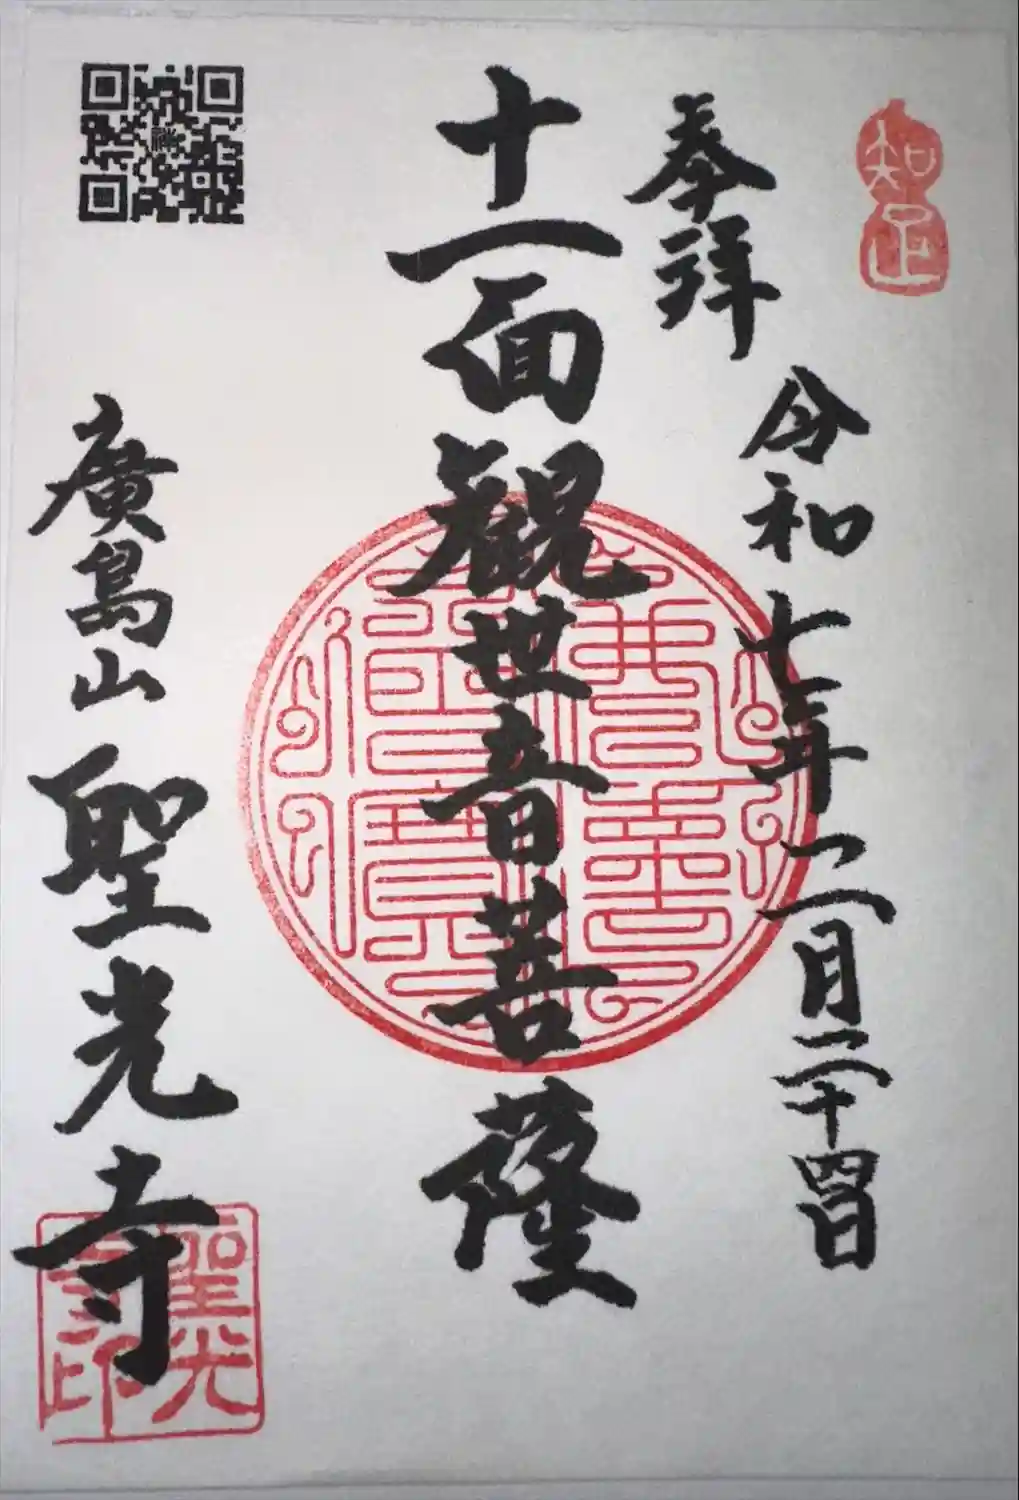 知足
奉拝
令和七年二月二十四日
十一面観世音菩薩
廣島山 聖光寺
聖光
寺印